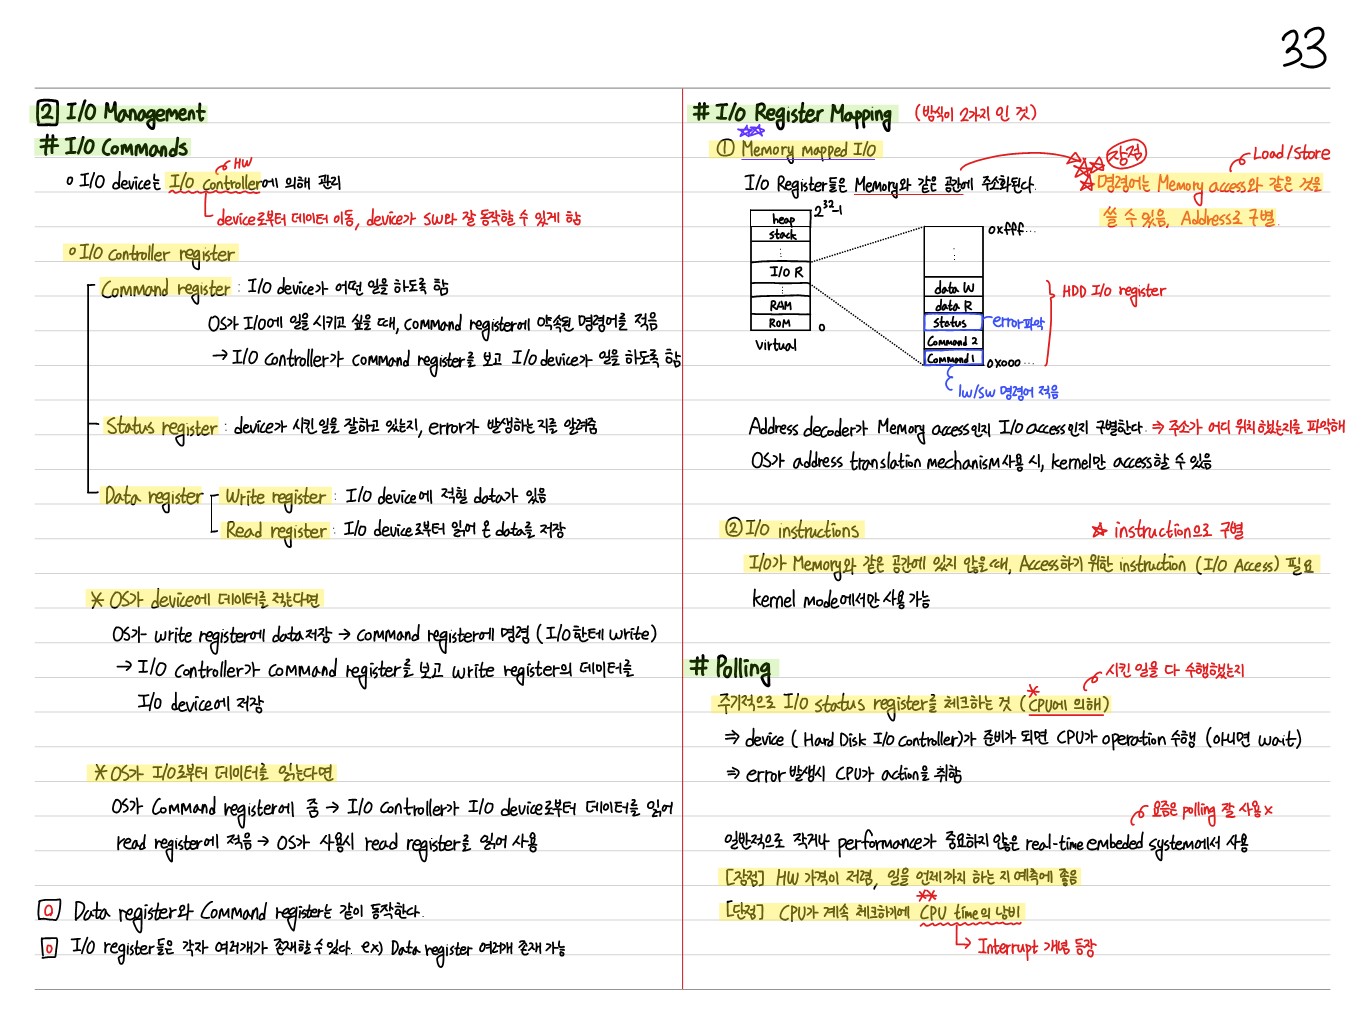 33
2 I/O Management
# I/O Commands
HW
o I/O device는 I/O controller에 의해 관리
device로부터 데이터 이동, device가 SW와 잘 동작할 수 있게 함
o I/O controller register
Command register : I/O device가 어떤 일을 하도록 함
OS가 I/O에 일을 시키고 싶을 때, command register에 약속된 명령어를 적음
→ I/O controller가 command register를 보고 I/O device가 일을 하도록 함
Status register : device가 시킨 일을 잘하고 있는지, error가 발생하는지를 알려줌
Data register
Write register : I/O device에 적힐 data가 있음
Read register : I/O device로부터 읽어 온 data를 저장
* OS가 device에 데이터를 적는다면
OS가 write register에 data 저장 → command register에 명령 (I/O한테 write)
→ I/O controller가 command register를 보고 write register의 데이터를
I/O device에 저장
* OS가 I/O로부터 데이터를 읽는다면
OS가 command register에 줌 → I/O controller가 I/O device로부터 데이터를 읽어
read register에 적음 → OS가 사용시 read register를 읽어 사용
Data register와 Command register는 같이 동작한다.
I/O register들은 각자 여러개가 존재할 수 있다. ex) Data register 여러개 존재 가능
# I/O Register Mapping (방식이 2가지 인 것)
① Memory mapped I/O
장점
Load/store
I/O Register들은 Memory와 같은 공간에 주소화된다.
명령어는 Memory access와 같은 것을
쓸 수 있음, Address로 구별
heap
2^32-1
stack
I/O R
RAM
ROM
0
virtual
0xfff...
data W
data R
status
error 파악
command 2
command 1
0x000...
HDD I/O register
lw/sw 명령어 적음
Address decoder가 Memory access인지 I/O access인지 구별한다. ⇒ 주소가 어디 위치했는지를 파악해
OS가 address translation mechanism 사용 시, kernel만 access할 수 있음
② I/O instructions
☆ instruction으로 구별
I/O가 Memory와 같은 공간에 있지 않을 때, Access하기 위한 instruction (I/O Access) 필요
kernel mode에서만 사용 가능
# Polling
시킨 일을 다 수행했는지
주기적으로 I/O status register를 체크하는 것 (CPU에 의해)
⇒ device (Hard Disk I/O controller)가 준비가 되면 CPU가 operation 수행 (아니면 wait)
⇒ error 발생시 CPU가 action을 취함
요즘은 polling 잘 사용 x
일반적으로 작거나 performance가 중요하지 않은 real-time embeded system에서 사용
[장점] HW 가격이 저렴, 일을 언제까지 하는 지 예측에 좋음
[단점] CPU가 계속 체크하기에 CPU time의 낭비
Interrupt 개념 등장